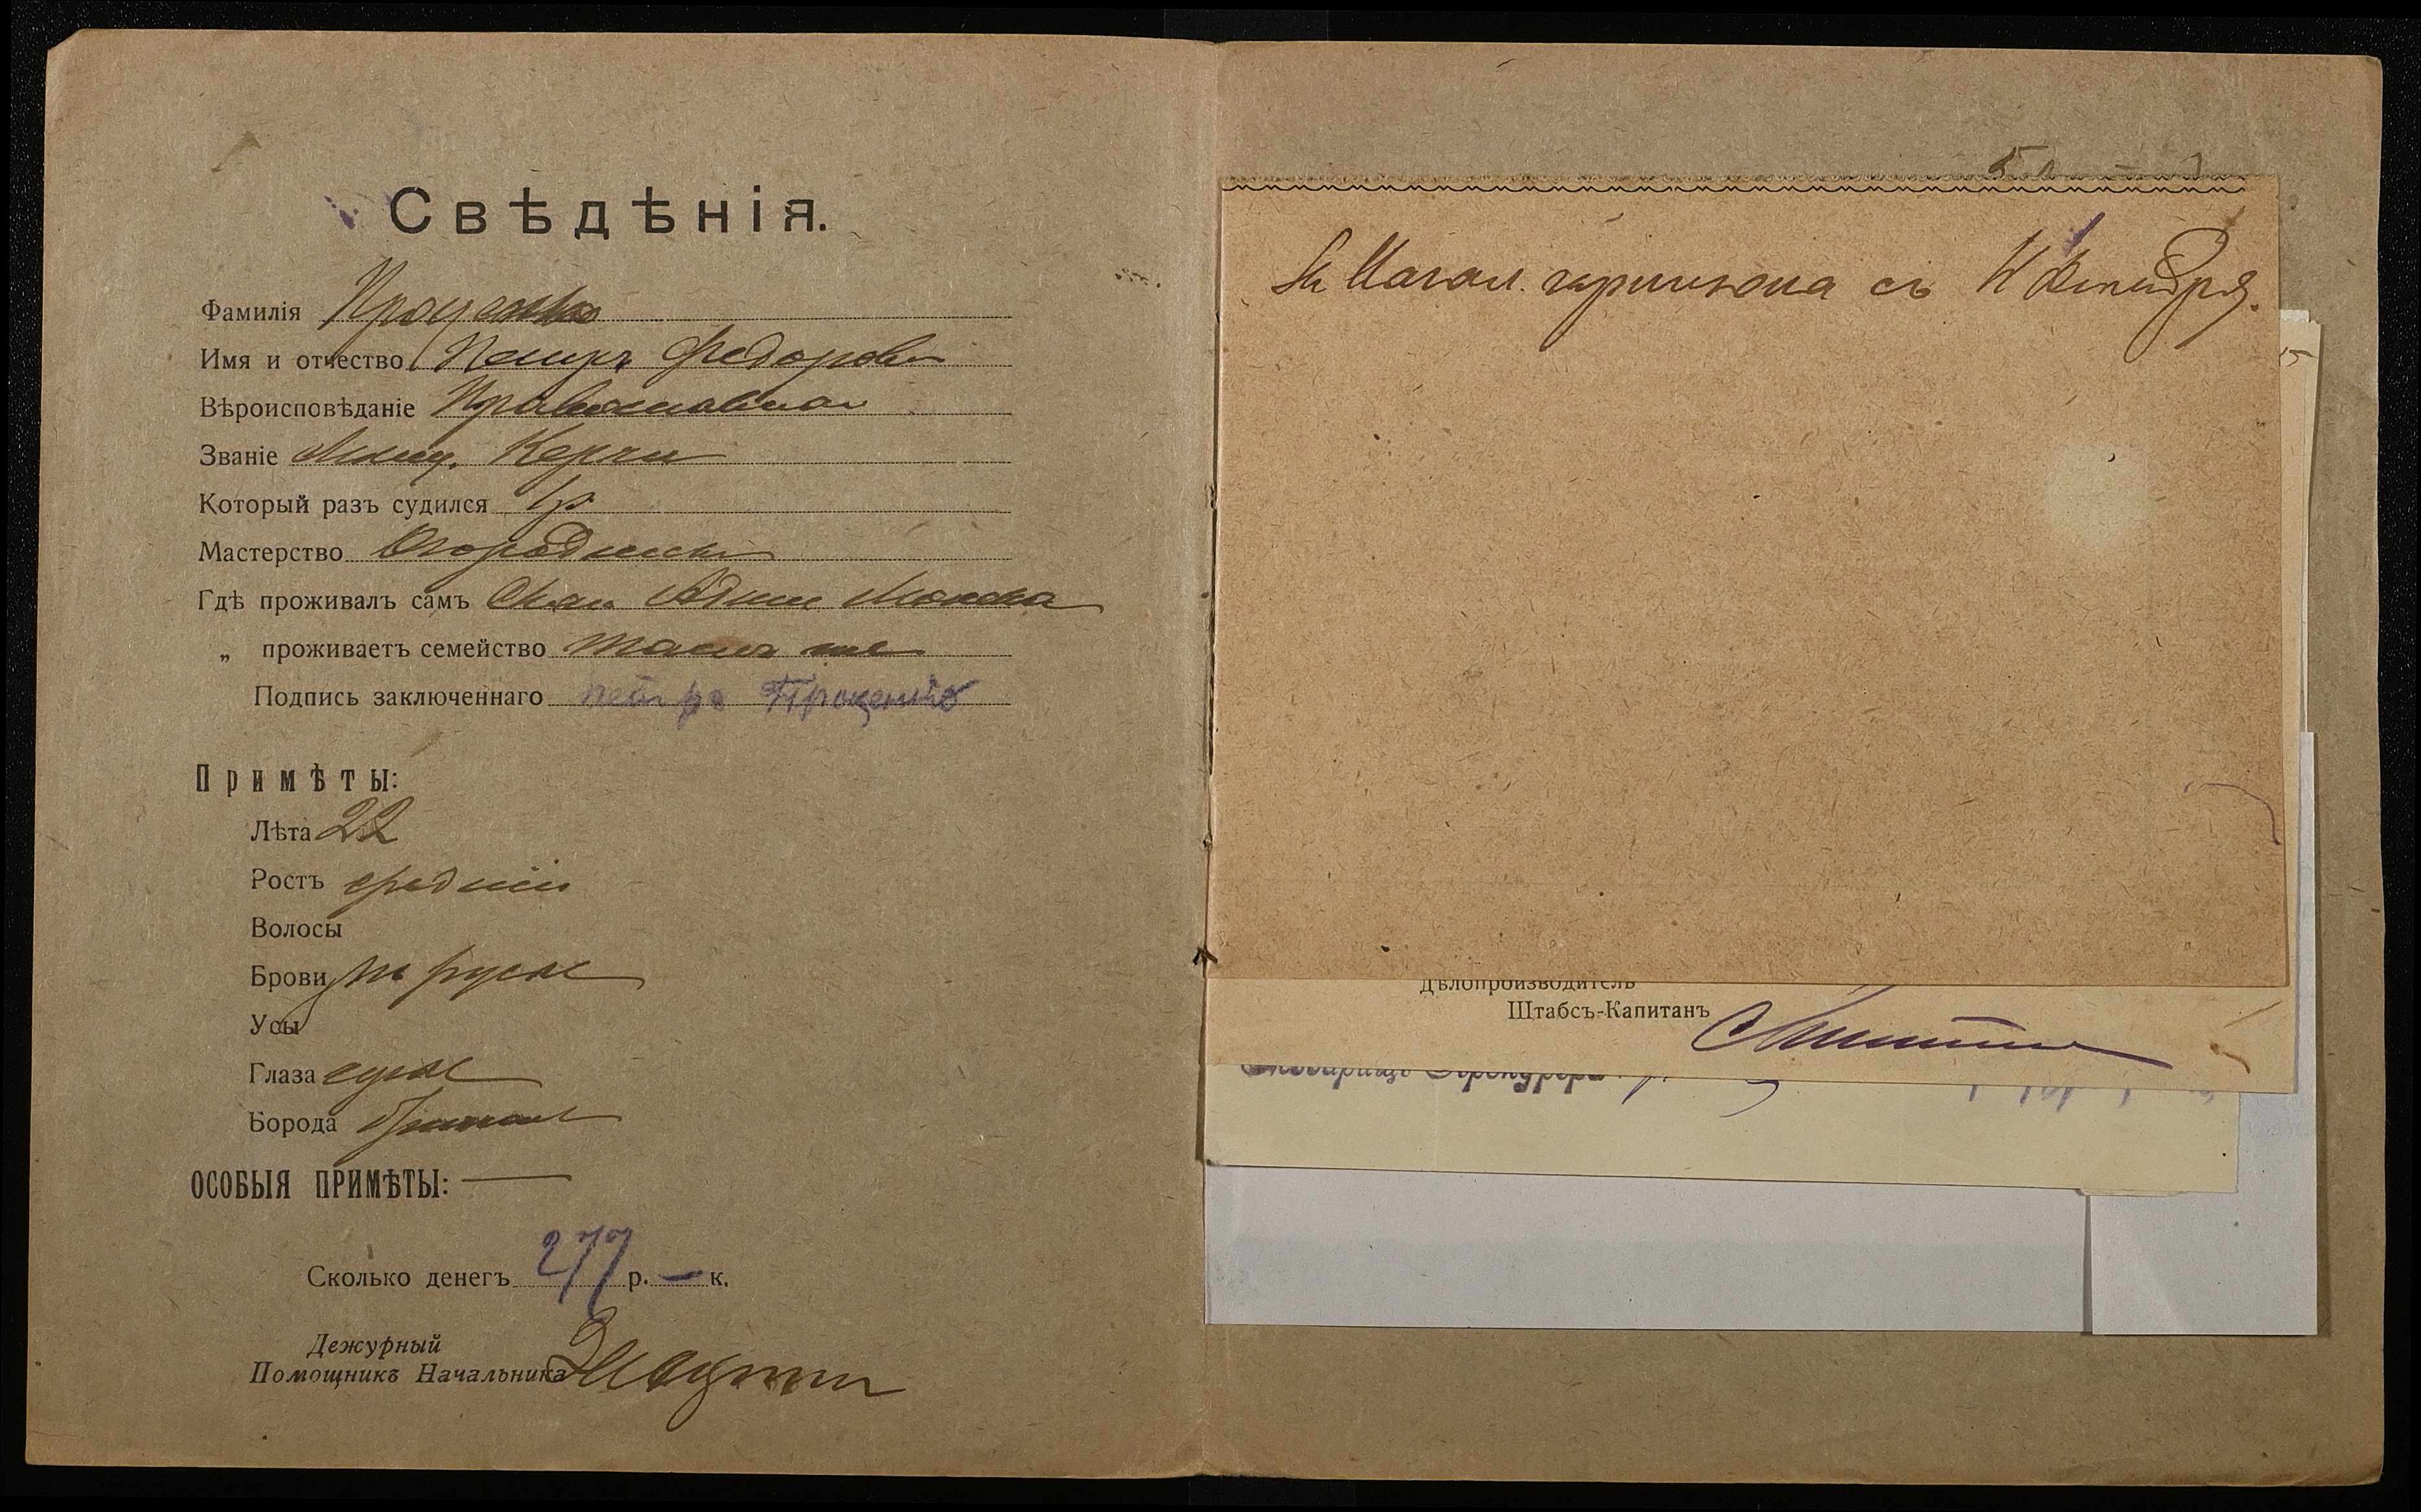 Свѣдѣнія.
Фамилія Проценко
Имя и отчество Петръ Федоровъ
Вѣроисповѣданіе Православное
Званіе Мѣщ. Керчи
Который разъ судился 1 р
Мастерство Огородникъ
Гдѣ проживалъ самъ
„ проживаетъ семейство тамъ же
Подпись заключеннаго Петръ Проценко
Примѣты:
Лѣта 22
Ростъ средній
Волосы
Брови русые
Усы
Глаза сѣрые
Борода
ОСОБЫЯ ПРИМѢТЫ: —
Сколько денегъ 277 р. — к.
Дежурный
Помощникъ Начальника
За Начал. гарнизона съ
Дѣлопроизводитель
Штабсъ-Капитанъ
Товарищъ Прокурора